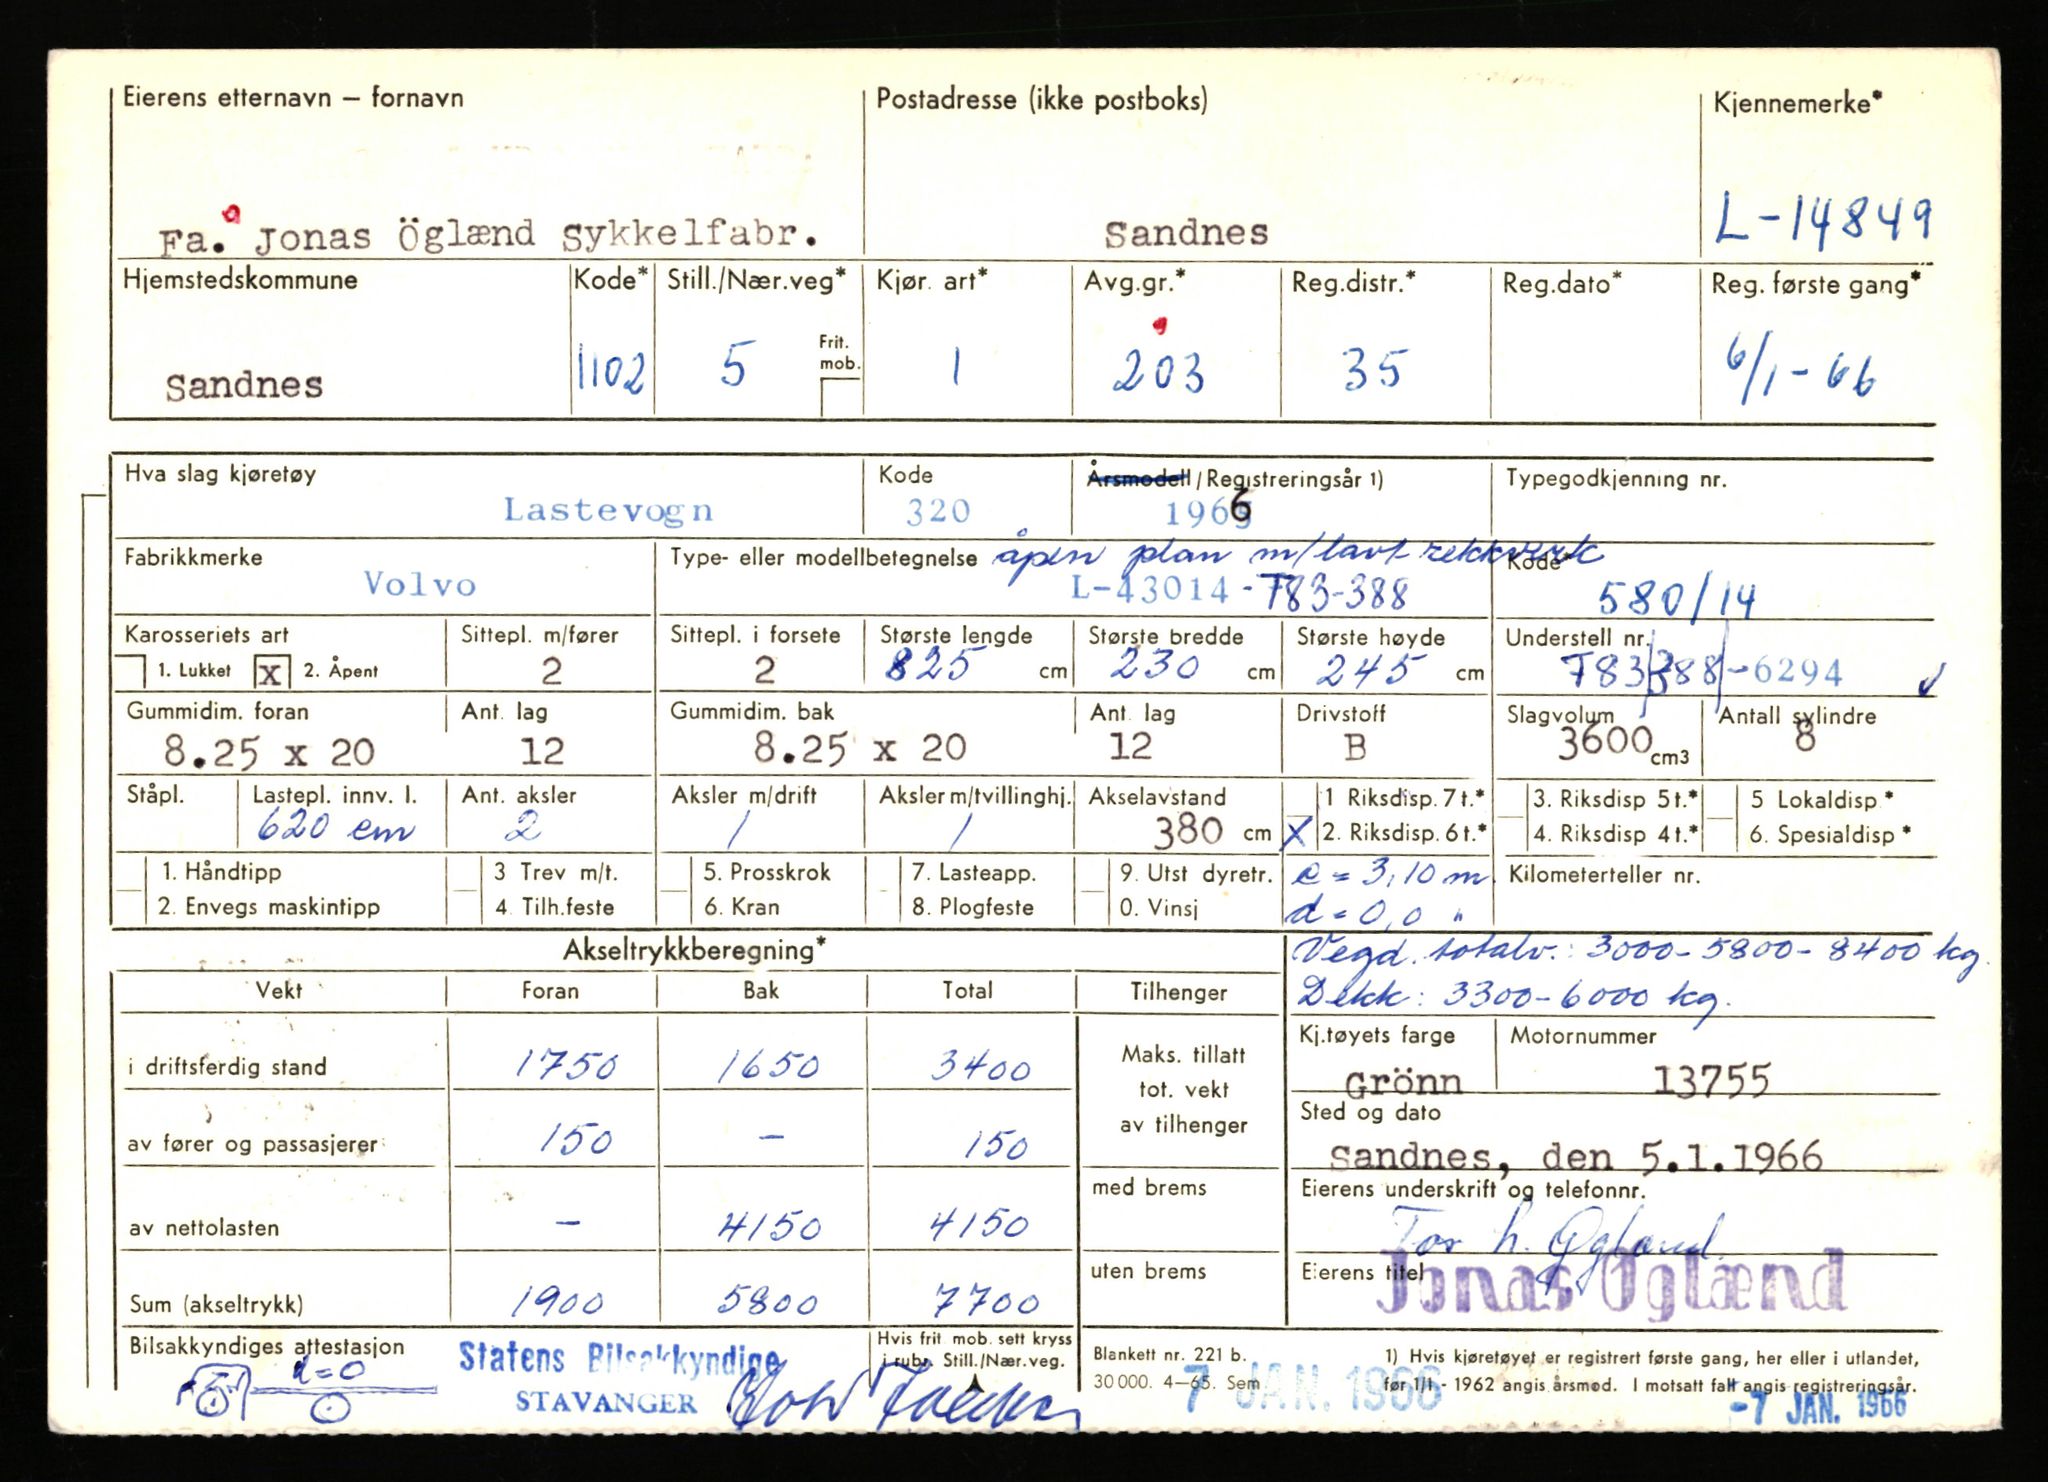 Eierens etternavn – fornavn Postadresse (ikke postboks) Kjennemerke*
Fa. Jonas Öglænd Sykkelfabr. Sandnes L-14849
Hjemstedskommune Kode* Still./Nær.veg* Kjør. art* Avg.gr.* Reg.distr.* Reg.dato* Reg. første gang*
Frit. mob.
Sandnes 1102 5 1 203 35 6/1-66
Hva slag kjøretøy Kode Årsmodell/Registreringsår 1) Typegodkjenning nr.
Lastevogn 320 1966
Fabrikkmerke Type- eller modellbetegnelse åpen plan m/lavt rekkverk Kode
Volvo L-43014-T83-388 580/14
Karosseriets art Sittepl. m/fører Sittepl. i forsete Største lengde Største bredde Største høyde Understell nr.
1. Lukket X 2. Åpent 2 2 825 cm 230 cm 245 cm T83/388/-6294
Gummidim. foran Ant. lag Gummidim. bak Ant. lag Drivstoff Slagvolum Antall sylindre
8.25 x 20 12 8.25 x 20 12 B 3600 cm3 8
Ståpl. Lastepl. innv. l. Ant. aksler Aksler m/drift Aksler m/tvillinghj. Akselavstand 1 Riksdisp. 7 t.* 3. Riksdisp 5 t.* 5 Lokaldisp.*
620 cm 2 1 1 380 cm X 2. Riksdisp. 6 t.* 4. Riksdisp 4 t.* 6. Spesialdisp*
1. Håndtipp 3 Trev m/t. 5. Prosskrok 7. Lasteapp. 9. Utst dyretr. c = 3,10 m. Kilometerteller nr.
2. Envegs maskintipp 4. Tilh.feste 6. Kran 8. Plogfeste 0. Vinsj d = 0,0 "
Akseltrykkberegning* Vegd. totalv.: 3000-5800-8400 kg.
Vekt Foran Bak Total Tilhenger Dekk: 3300-6000 kg.
Kj.tøyets farge Motornummer
i driftsferdig stand 1750 1650 3400 Maks. tillatt tot. vekt av tilhenger
Grönn 13755
Sted og dato
av fører og passasjerer 150 – 150
Sandnes, den 5.1.1966
med brems Eierens underskrift og telefonnr.
av nettolasten – 4150 4150 Tor h. Øgland.
uten brems Eierens titel Jonas Øglænd
Sum (akseltrykk) 1900 5800 7700
Bilsakkyndiges attestasjon Statens Bilsakkyndige Hvis frit. mob. sett kryss i rubr. Still./Nær.veg.
d=0 STAVANGER
Blankett nr. 221 b. 1) Hvis kjøretøyet er registrert første gang, her eller i utlandet,
30 000. 4–65. Sem. før 1/1 - 1962 angis årsmod. I motsatt fall angis registreringsår.
7 JAN. 1966 -7 JAN. 1966